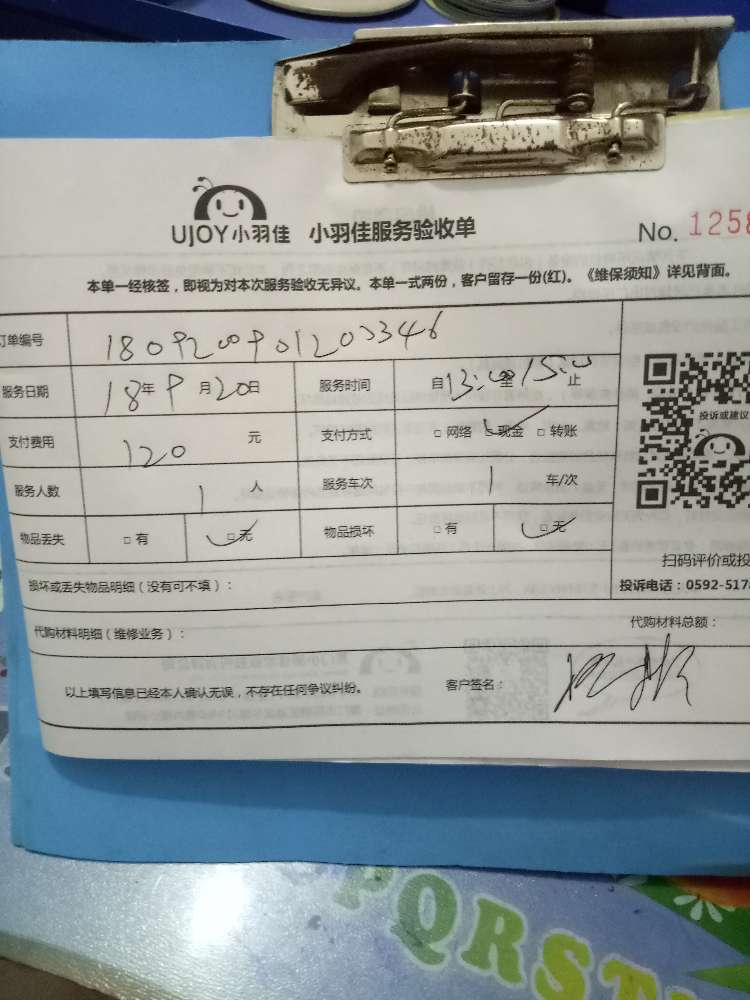 UJOY小羽佳 小羽佳服务验收单 No. 1258
本单一经核签，即视为对本次服务验收无异议。本单一式两份，客户留存一份(红)。《维保须知》详见背面。
订单编号 1809200901200346
服务日期 18年9月20日 服务时间 自13:00至15:00止
支付费用 120 元 支付方式 □ 网络 □ 现金 □ 转账
投诉或建议
服务人数 1 人 服务车次 1 车/次
物品丢失 □ 有 □ 无 物品损坏 □ 有 □ 无
扫码评价或投
损坏或丢失物品明细（没有可不填）：
投诉电话：0592-5178
代购材料明细（维修业务）： 代购材料总额：
以上填写信息已经本人确认无误，不存在任何争议纠纷。 客户签名：
PQRST